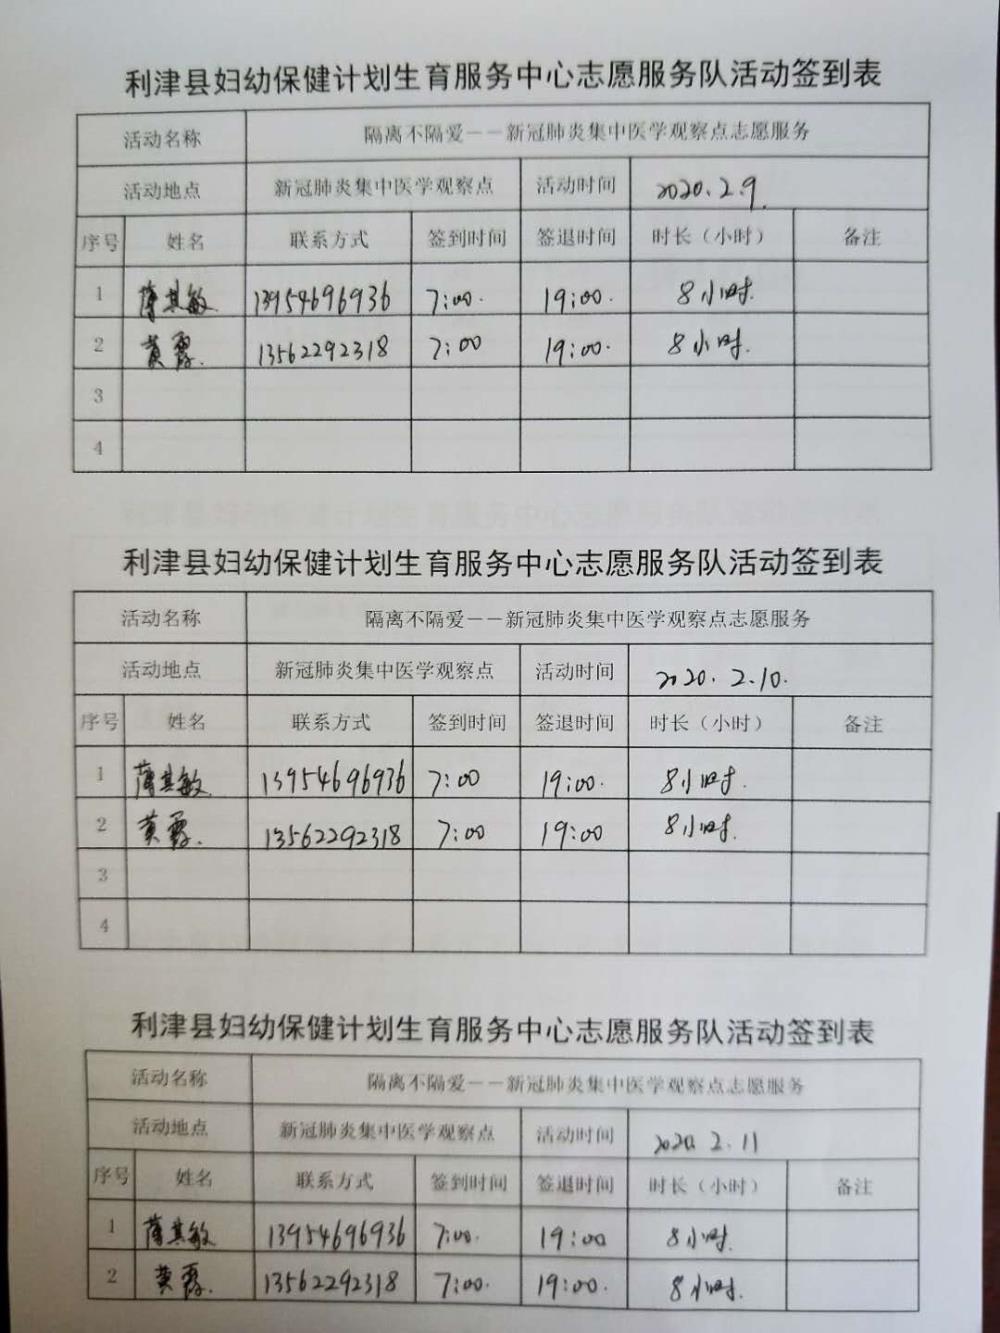 利津县妇幼保健计划生育服务中心志愿服务队活动签到表
活动名称 隔离不隔爱——新冠肺炎集中医学观察点志愿服务
活动地点 新冠肺炎集中医学观察点 活动时间 2020.2.9.
序号 姓名 联系方式 签到时间 签退时间 时长（小时） 备注
1 薄其敏 13954696936 7:00. 19:00. 8小时.
2 黄露. 13562292318 7:00 19:00. 8小时.
3
4
利津县妇幼保健计划生育服务中心志愿服务队活动签到表
活动名称 隔离不隔爱——新冠肺炎集中医学观察点志愿服务
活动地点 新冠肺炎集中医学观察点 活动时间 2020.2.10.
序号 姓名 联系方式 签到时间 签退时间 时长（小时） 备注
1 薄其敏 13954696936 7:00 19:00. 8小时.
2 黄露. 13562292318 7:00 19:00 8小时.
3
4
利津县妇幼保健计划生育服务中心志愿服务队活动签到表
活动名称 隔离不隔爱——新冠肺炎集中医学观察点志愿服务
活动地点 新冠肺炎集中医学观察点 活动时间 2020.2.11
序号 姓名 联系方式 签到时间 签退时间 时长（小时） 备注
1 薄其敏 13954696936 7:00. 19:00 8小时.
2 黄露. 13562292318 7:00. 19:00. 8小时.